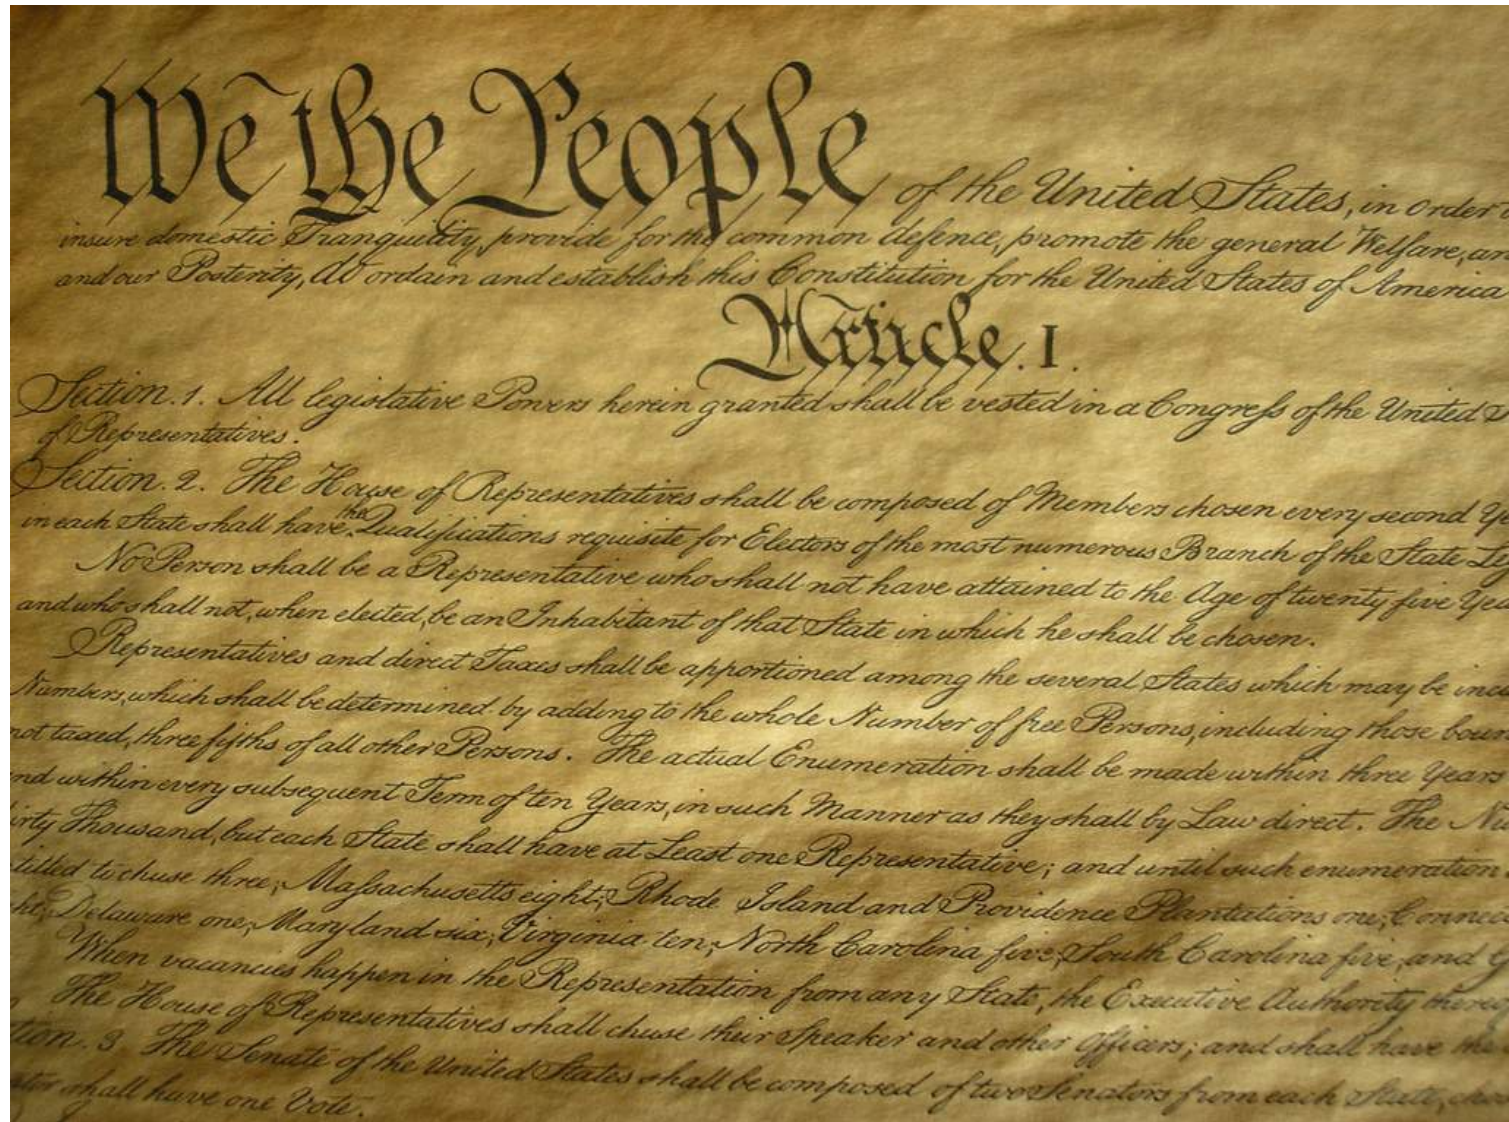 We the People of the United States, in order
insure domestic Tranquility, provide for the common defence, promote the general Welfare, an
and our Posterity, do ordain and establish this Constitution for the United States of America
Article. I.
Section. 1. All legislative Powers herein granted shall be vested in a Congress of the United S
of Representatives.
Section. 2. The House of Representatives shall be composed of Members chosen every second Y
in each State shall have the Qualifications requisite for Electors of the most numerous Branch of the State Leg
No Person shall be a Representative who shall not have attained to the Age of twenty five Yea
and who shall not, when elected, be an Inhabitant of that State in which he shall be chosen.
Representatives and direct Taxes shall be apportioned among the several States which may be incl
Numbers, which shall be determined by adding to the whole Number of free Persons, including those boun
not taxed, three fifths of all other Persons. The actual Enumeration shall be made within three Years
nd within every subsequent Term of ten Years, in such Manner as they shall by Law direct. The Nu
irty Thousand, but each State shall have at Least one Representative; and until such enumeration
titled to chuse three, Massachusetts eight, Rhode Island and Providence Plantations one, Connec
ht, Delaware one, Maryland six, Virginia ten, North Carolina five, South Carolina five, and G
When vacancies happen in the Representation from any State, the Executive Authority thereo
The House of Representatives shall chuse their Speaker and other Officers; and shall have the
tion. 3 The Senate of the United States shall be composed of two Senators from each State, chos
ator shall have one Vote.